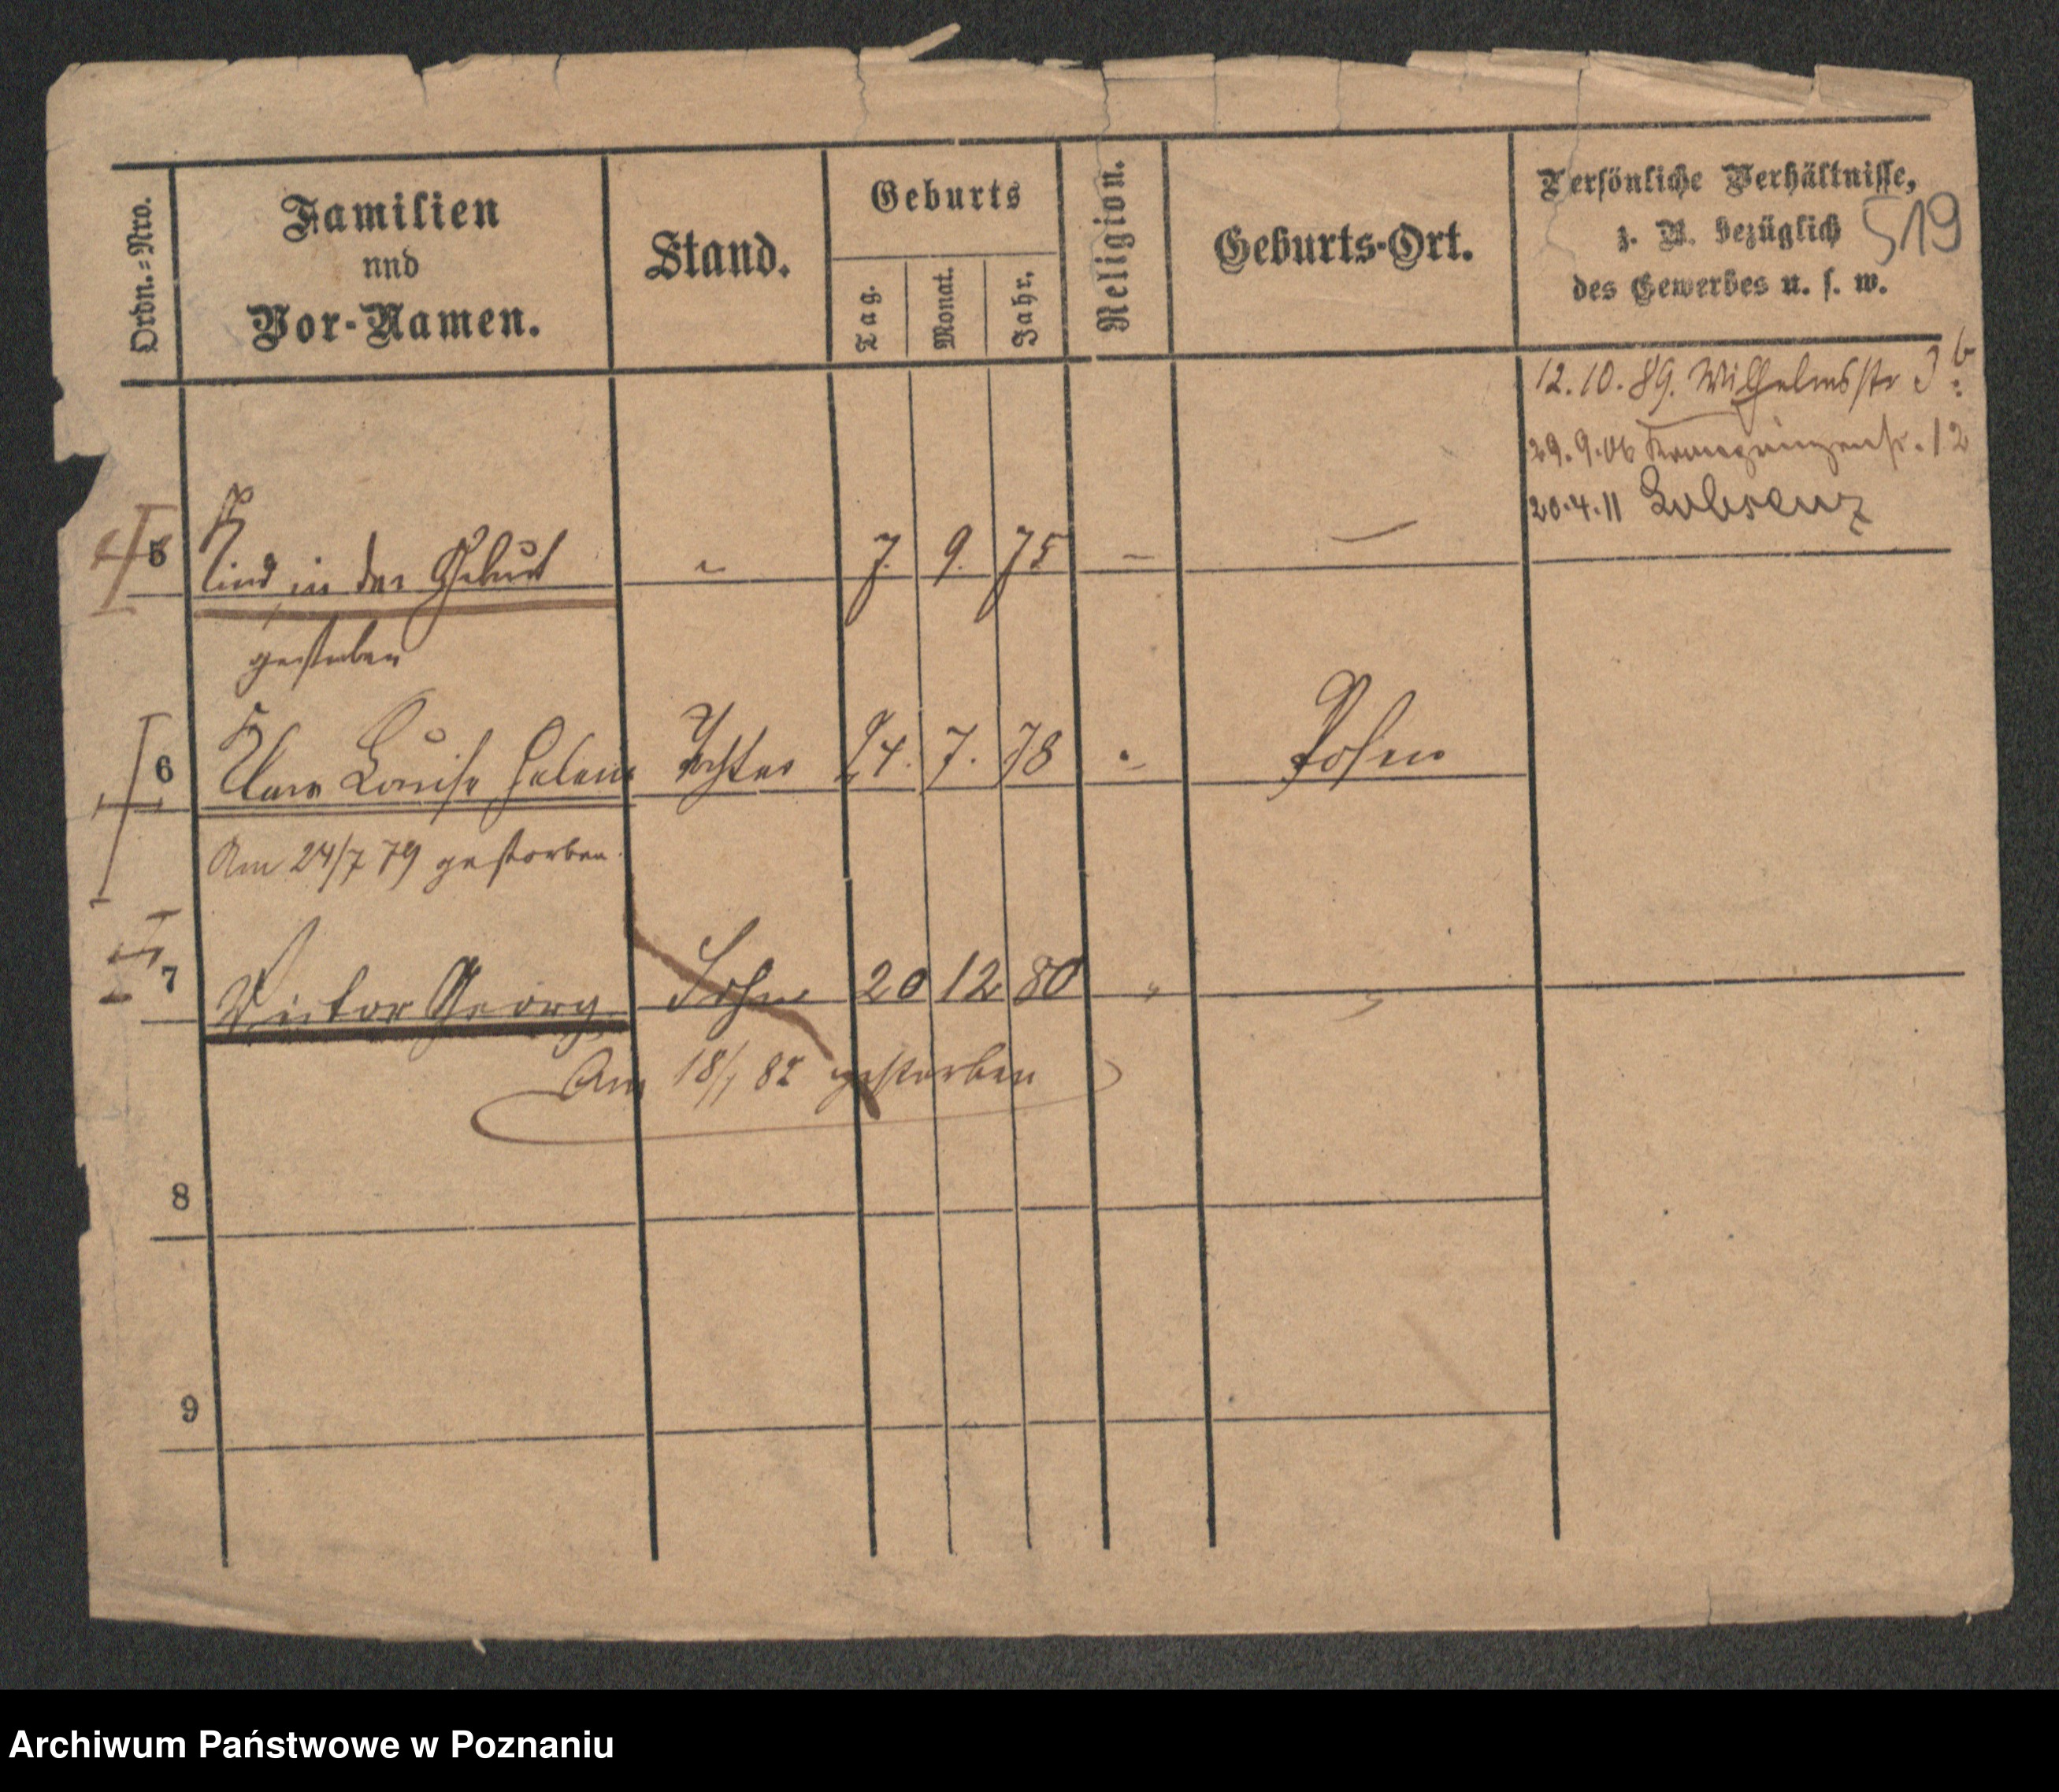 Ordn.=Nro.
Familien
und
Vor-Namen.
Stand.
Geburts
Tag.
Monat.
Jahr.
Religion.
Geburts-Ort.
Persönliche Verhältnisse,
z. B. bezüglich
des Gewerbes u. s. w.
519
12.10.89. Wilhelmsstr 3 b
29.9.06 Kronprinzenstr. 12
20.4.11 Lobsenz
5 Kind in der Geburt " 7. 9. 75 — —
gestorben
6 Clara Louise Helene Tochter 24. 7. 78 " Posen
Am 24/7 79 gestorben.
7 Victor Georg Sohn 20 12 80 " "
Am 18/1 82 gestorben
8
9
Archiwum Państwowe w Poznaniu